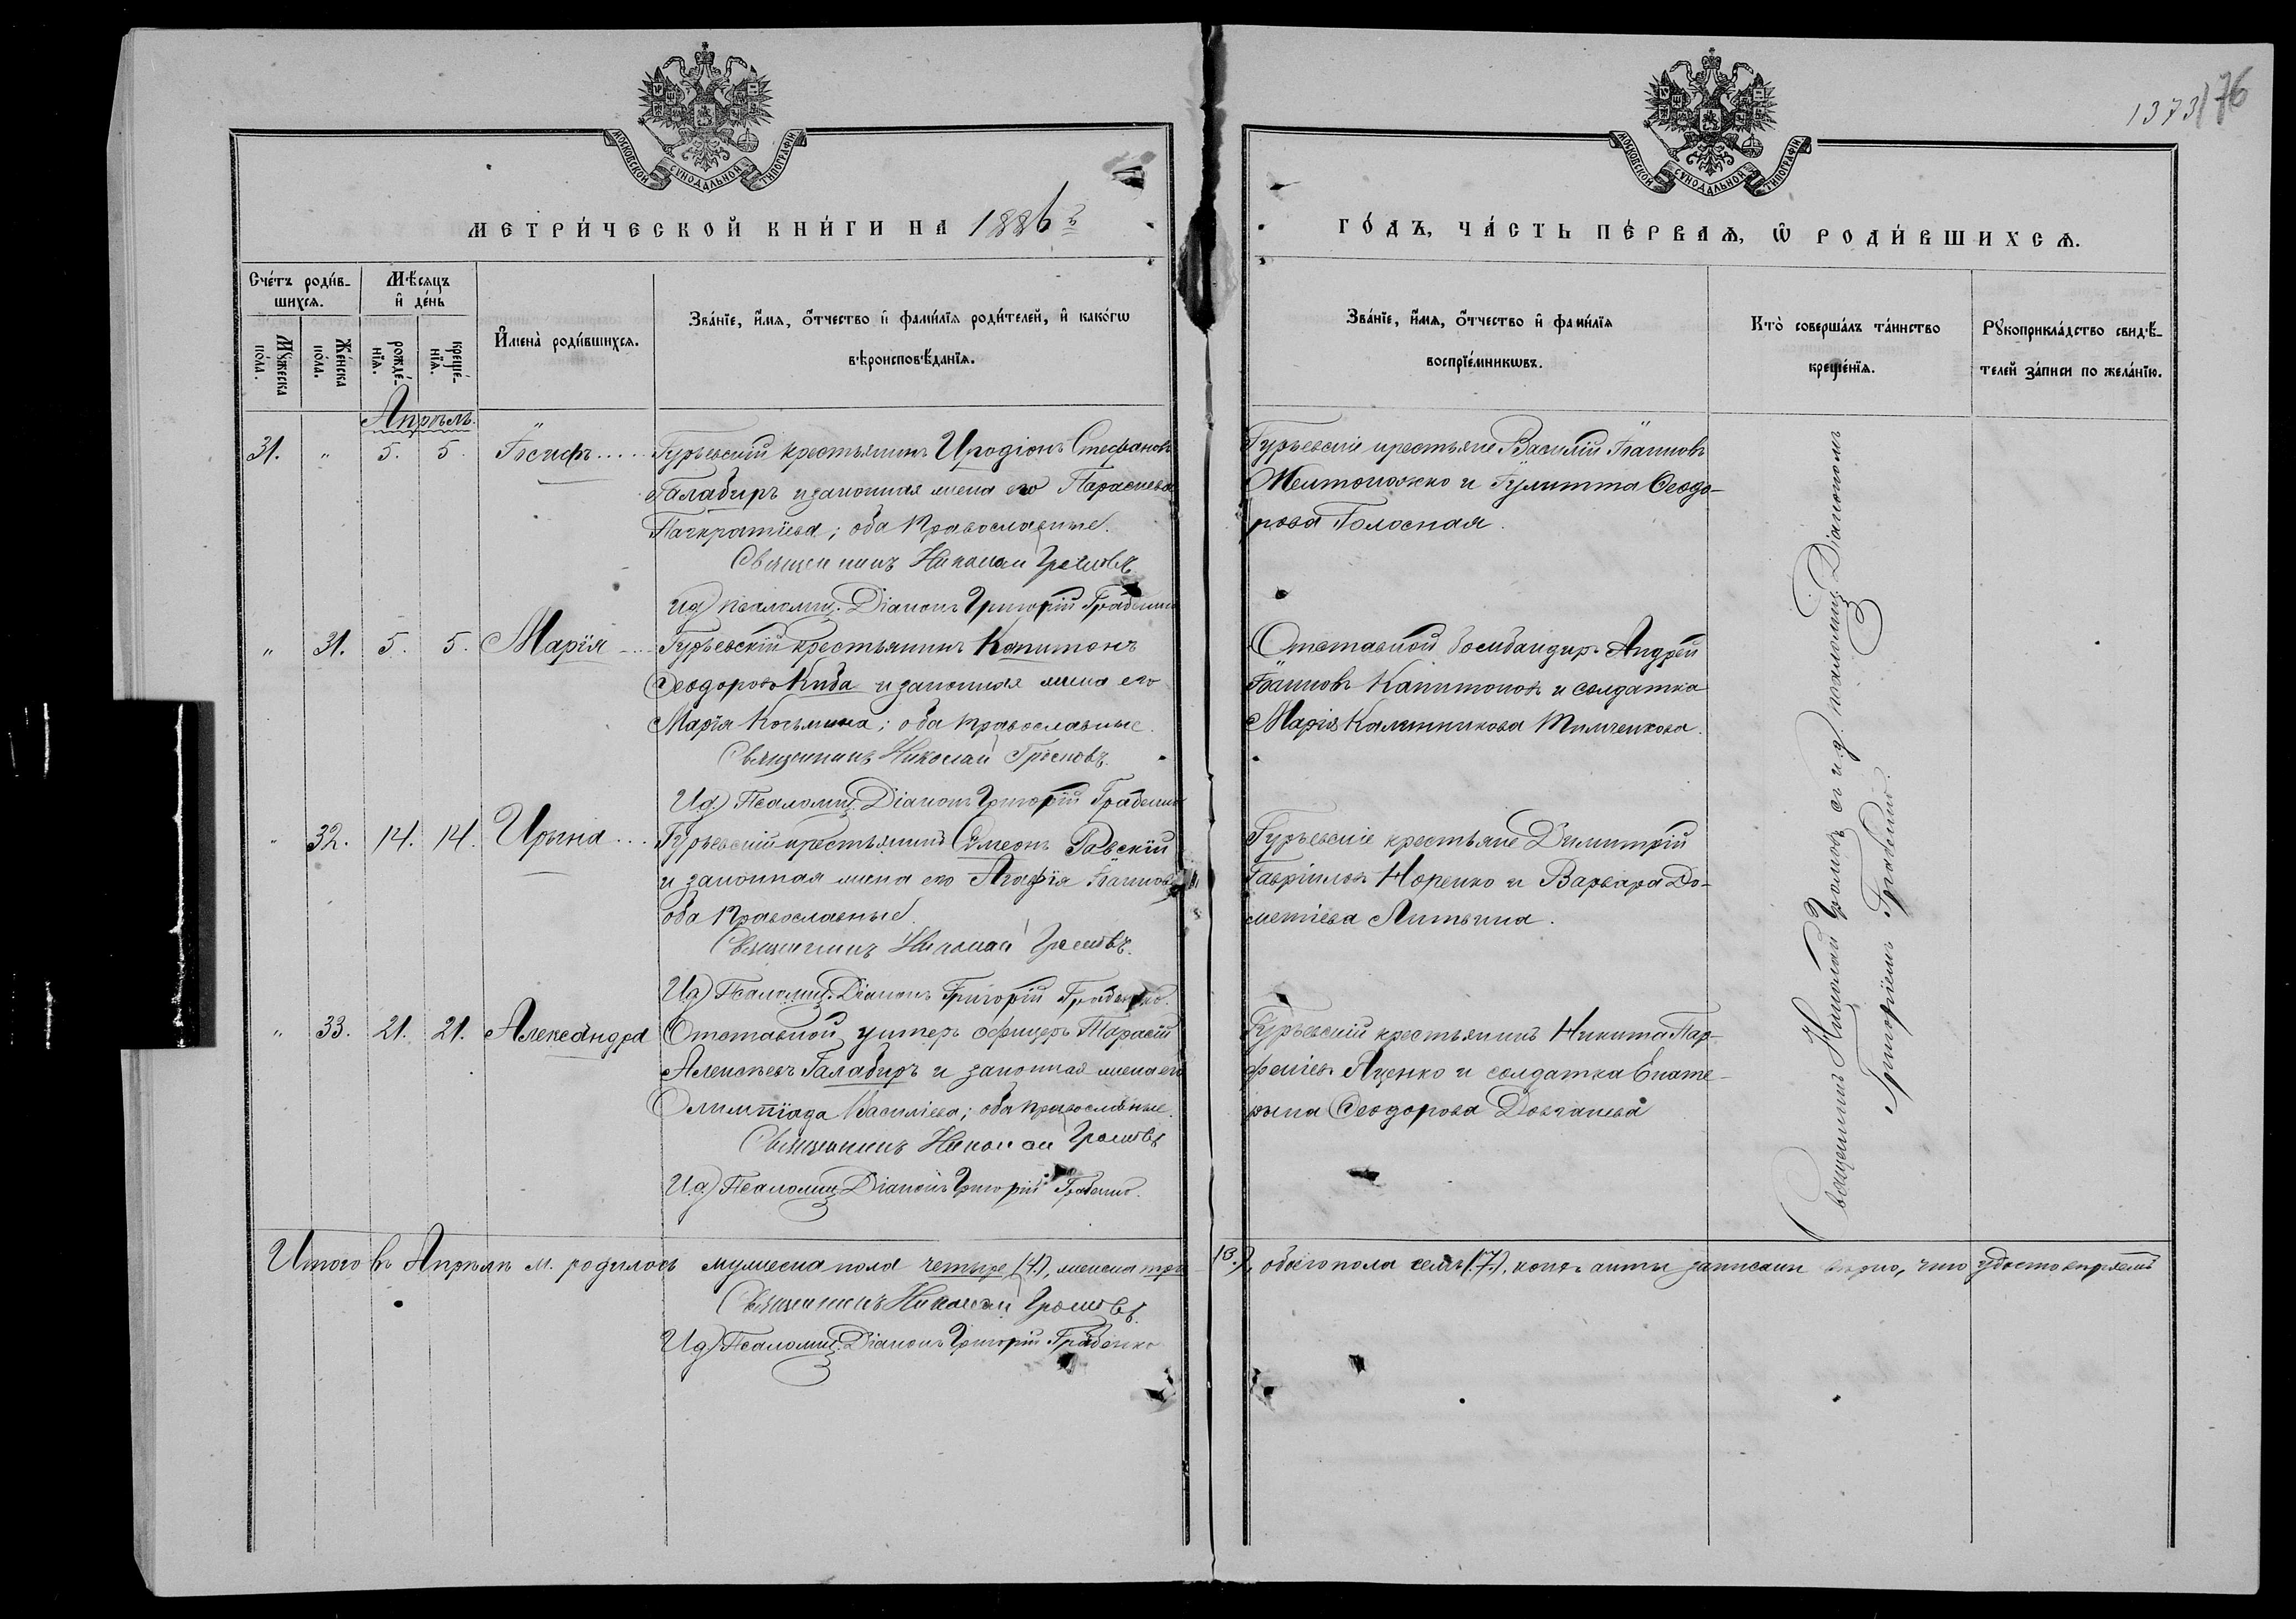 1373/76
МОСКОВСКОЙ СѴНОДАЛЬНОЙ ТИПОГРАФІИ
МОСКОВСКОЙ СѴНОДАЛЬНОЙ ТИПОГРАФІИ
МЕТРИ́ЧЕСКОЙ КНИ́ГИ НА 1886 й
ГО́ДЪ, ЧА́СТЬ ПЕ́РВАѦ, Ѡ РОДИ́ВШИХСѦ.
Сче́тъ роди́в-
шихсѧ.
Мѣ́сѧцъ
и҆ де́нь
Мꙋ́жеска
по́ла.
Же́нска
по́ла.
рожде́-
нїѧ.
креще́-
нїѧ.
И҆мена̀ роди́вшихсѧ.
Зва́нїе, и҆́мѧ, ѻ҆́тчество и҆ фами́лїѧ роди́телей, и҆ како́гѡ
вѣроисповѣ́данїѧ.
Зва́нїе, и҆́мѧ, ѻ҆́тчество и҆ фами́лїѧ
воспрїе́мникѡвъ.
Кто̀ соверша́лъ та́инство
креще́нїѧ.
Рꙋкоприкла́дство свидѣ́-
телей за́писи по жела́нїю.
Апрѣль.
31. „ 5. 5. Іосифъ.... Гурьевскій крестьянинъ Иродіонъ Стефановъ
Галабиръ и законная жена его Параскева
Панкратіева; оба православные.
Священникъ Николай Громовъ
И.д. псаломщ. Діаконъ Григорій Грабенко
Гурьевскіе крестьяне Василій Іоанновъ
Желтоножко и Іулитта Ѳеодо-
рова Голосная.
„ 31. 5. 5. Марія ... Гурьевскій крестьянинъ Капитонъ
Ѳеодоровъ Киба и законная жена его
Марія Косьмина; оба православные.
Священникъ Николай Громовъ.
И.д. Псаломщ. Діаконъ Григорій Грабенко
Отставной бомбандиръ Андрей
Іоанновъ Капитоновъ и солдатка
Марія Калинникова Тимченкова.
„ 32. 14. 14. Ирина ... Гурьевскій крестьянинъ Сѵмеонъ Равскій
и законная жена его Агафія Іоаннова
оба православные.
Священникъ Николай Громовъ.
И.д. Псаломщ. Діаконъ Григорій Грабенко.
Гурьевскіе крестьяне Димитрій
Гавріиловъ Норенко и Варвара До-
метіева Литвина.
„ 33. 21. 21. Александра Отставной унтеръ офицеръ Тарасій
Алексѣевъ Галабиръ и законная жена его
Олимпіада Василіева; оба православные.
Священникъ Николай Громовъ
И.д. Псаломщ. Діаконъ Григорій Грабенко.
Гурьевскій крестьянинъ Никита Пар-
феніевъ Яценко и солдатка Екате-
рина Ѳеодорова Довганева
Священникъ Николай Громовъ съ и.д. псаломщ. Діакономъ
Григоріемъ Грабенко.
Итого въ Апрѣлѣ м. родилось мужеска пола четыре (4), женска три (3.), обоего пола семь (7.), коихъ акты записаны вѣрно, что удостовѣряемъ
Священникъ Николай Громовъ.
И.д. Псаломщ. Діаконъ Григорій Грабенко